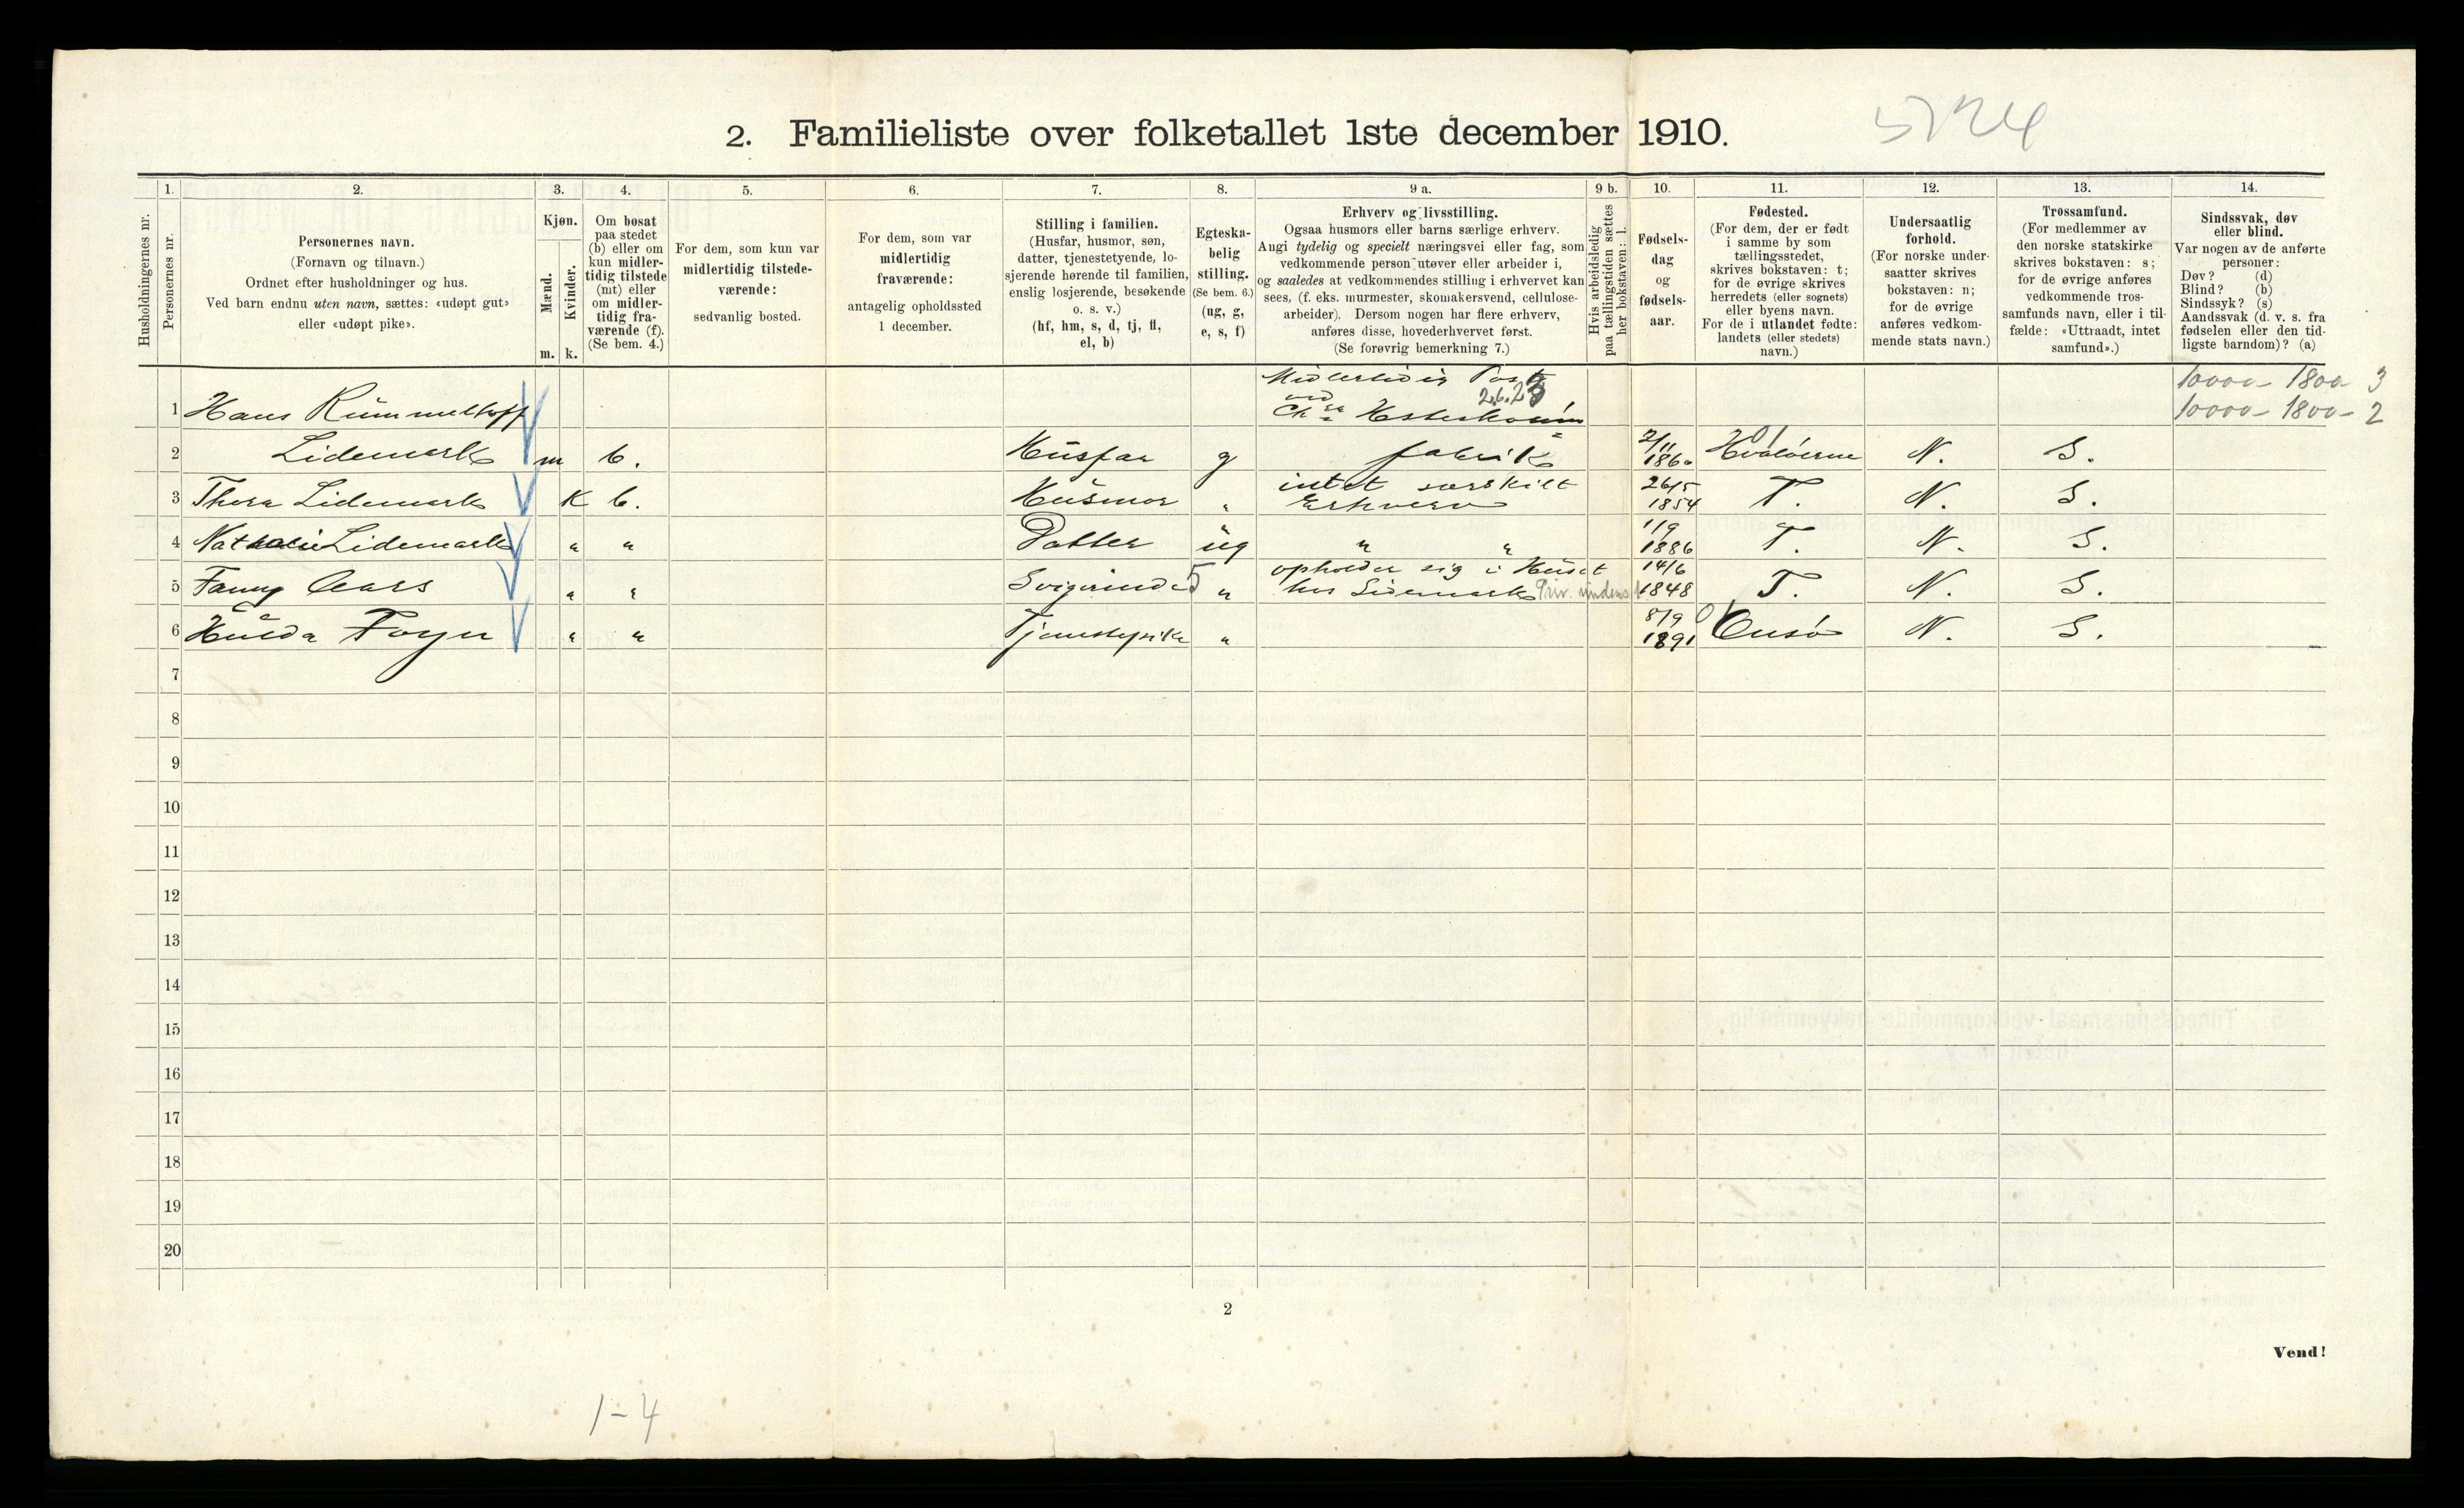 5724
2. Familieliste over folketallet 1ste december 1910.
Husholdningernes nr.
1.
Personernes nr.
2.
Personernes navn.
(Fornavn og tilnavn.)
Ordnet efter husholdninger og hus.
Ved barn endnu uten navn, sættes: «udøpt gut»
eller «udøpt pike».
3.
Kjøn.
Mænd.
Kvinder.
m. k.
4.
Om bosat
paa stedet
(b) eller om
kun midler-
tidig tilstede
(mt) eller
om midler-
tidig fra-
værende (f).
(Se bem. 4.)
5.
For dem, som kun var
midlertidig tilstede-
værende:
sedvanlig bosted.
6.
For dem, som var
midlertidig
fraværende:
antagelig opholdssted
1 december.
7.
Stilling i familien.
(Husfar, husmor, søn,
datter, tjenestetyende, lo-
sjerende hørende til familien,
enslig losjerende, besøkende
o. s. v.)
(hf, hm, s, d, tj, fl,
el, b)
8.
Egteska-
belig
stilling.
(Se bem. 6.)
(ug, g,
e, s, f)
9 a.
Erhverv og livsstilling.
Ogsaa husmors eller barns særlige erhverv.
Angi tydelig og specielt næringsvei eller fag, som
vedkommende person utøver eller arbeider i,
og saaledes at vedkommendes stilling i erhvervet kan
sees, (f. eks. murmester, skomakersvend, cellulose-
arbeider). Dersom nogen har flere erhverv,
anføres disse, hovederhvervet først.
(Se forøvrig bemerkning 7.)
9 b.
Hvis arbeidsledig
paa tællingstiden sættes
her bokstaven: l.
10.
Fødsels-
dag
og
fødsels-
aar.
11.
Fødested.
(For dem, der er født
i samme by som
tællingsstedet,
skrives bokstaven: t;
for de øvrige skrives
herredets (eller sognets)
eller byens navn.
For de i utlandet fødte:
landets (eller stedets)
navn.)
12.
Undersaatlig
forhold.
(For norske under-
saatter skrives
bokstaven: n;
for de øvrige
anføres vedkom-
mende stats navn.)
13.
Trossamfund.
(For medlemmer av
den norske statskirke
skrives bokstaven: s;
for de øvrige anføres
vedkommende tros-
samfunds navn, eller i til-
fælde: «Uttraadt, intet
samfund».)
14.
Sindssvak, døv
eller blind.
Var nogen av de anførte
personer:
Døv? (d)
Blind? (b)
Sindssyk? (s)
Aandssvak (d. v. s. fra
fødselen eller den tid-
ligste barndom)? (a)
Midlertidig Post 10000 - 1800 3
1 Hans Rummelhoff ved Chra Hesteskosøm 10000 - 1800 - 2
2 Lidemark m b. Husfar g fabrik 2/11 1860 Hvaløerne N. S.
3 Thora Lidemark K b. Husmor " intet særskilt Erhverv 26/5 1854 T. N. S.
4 Nathalie Lidemark " " Datter ug " " 1/9 1886 T. N. S.
5 Fanny Aars " " Svigerinde " opholder sig i Huset hos Lidemark 14/6 1848 T. N. S.
6 Hulda Foyn " " Tjenestepike " 8/9 1891 Onsø N. S.
7
8
9
10
11
12
13
14
15
16
17
18
19
20
2
Vend!
1-4